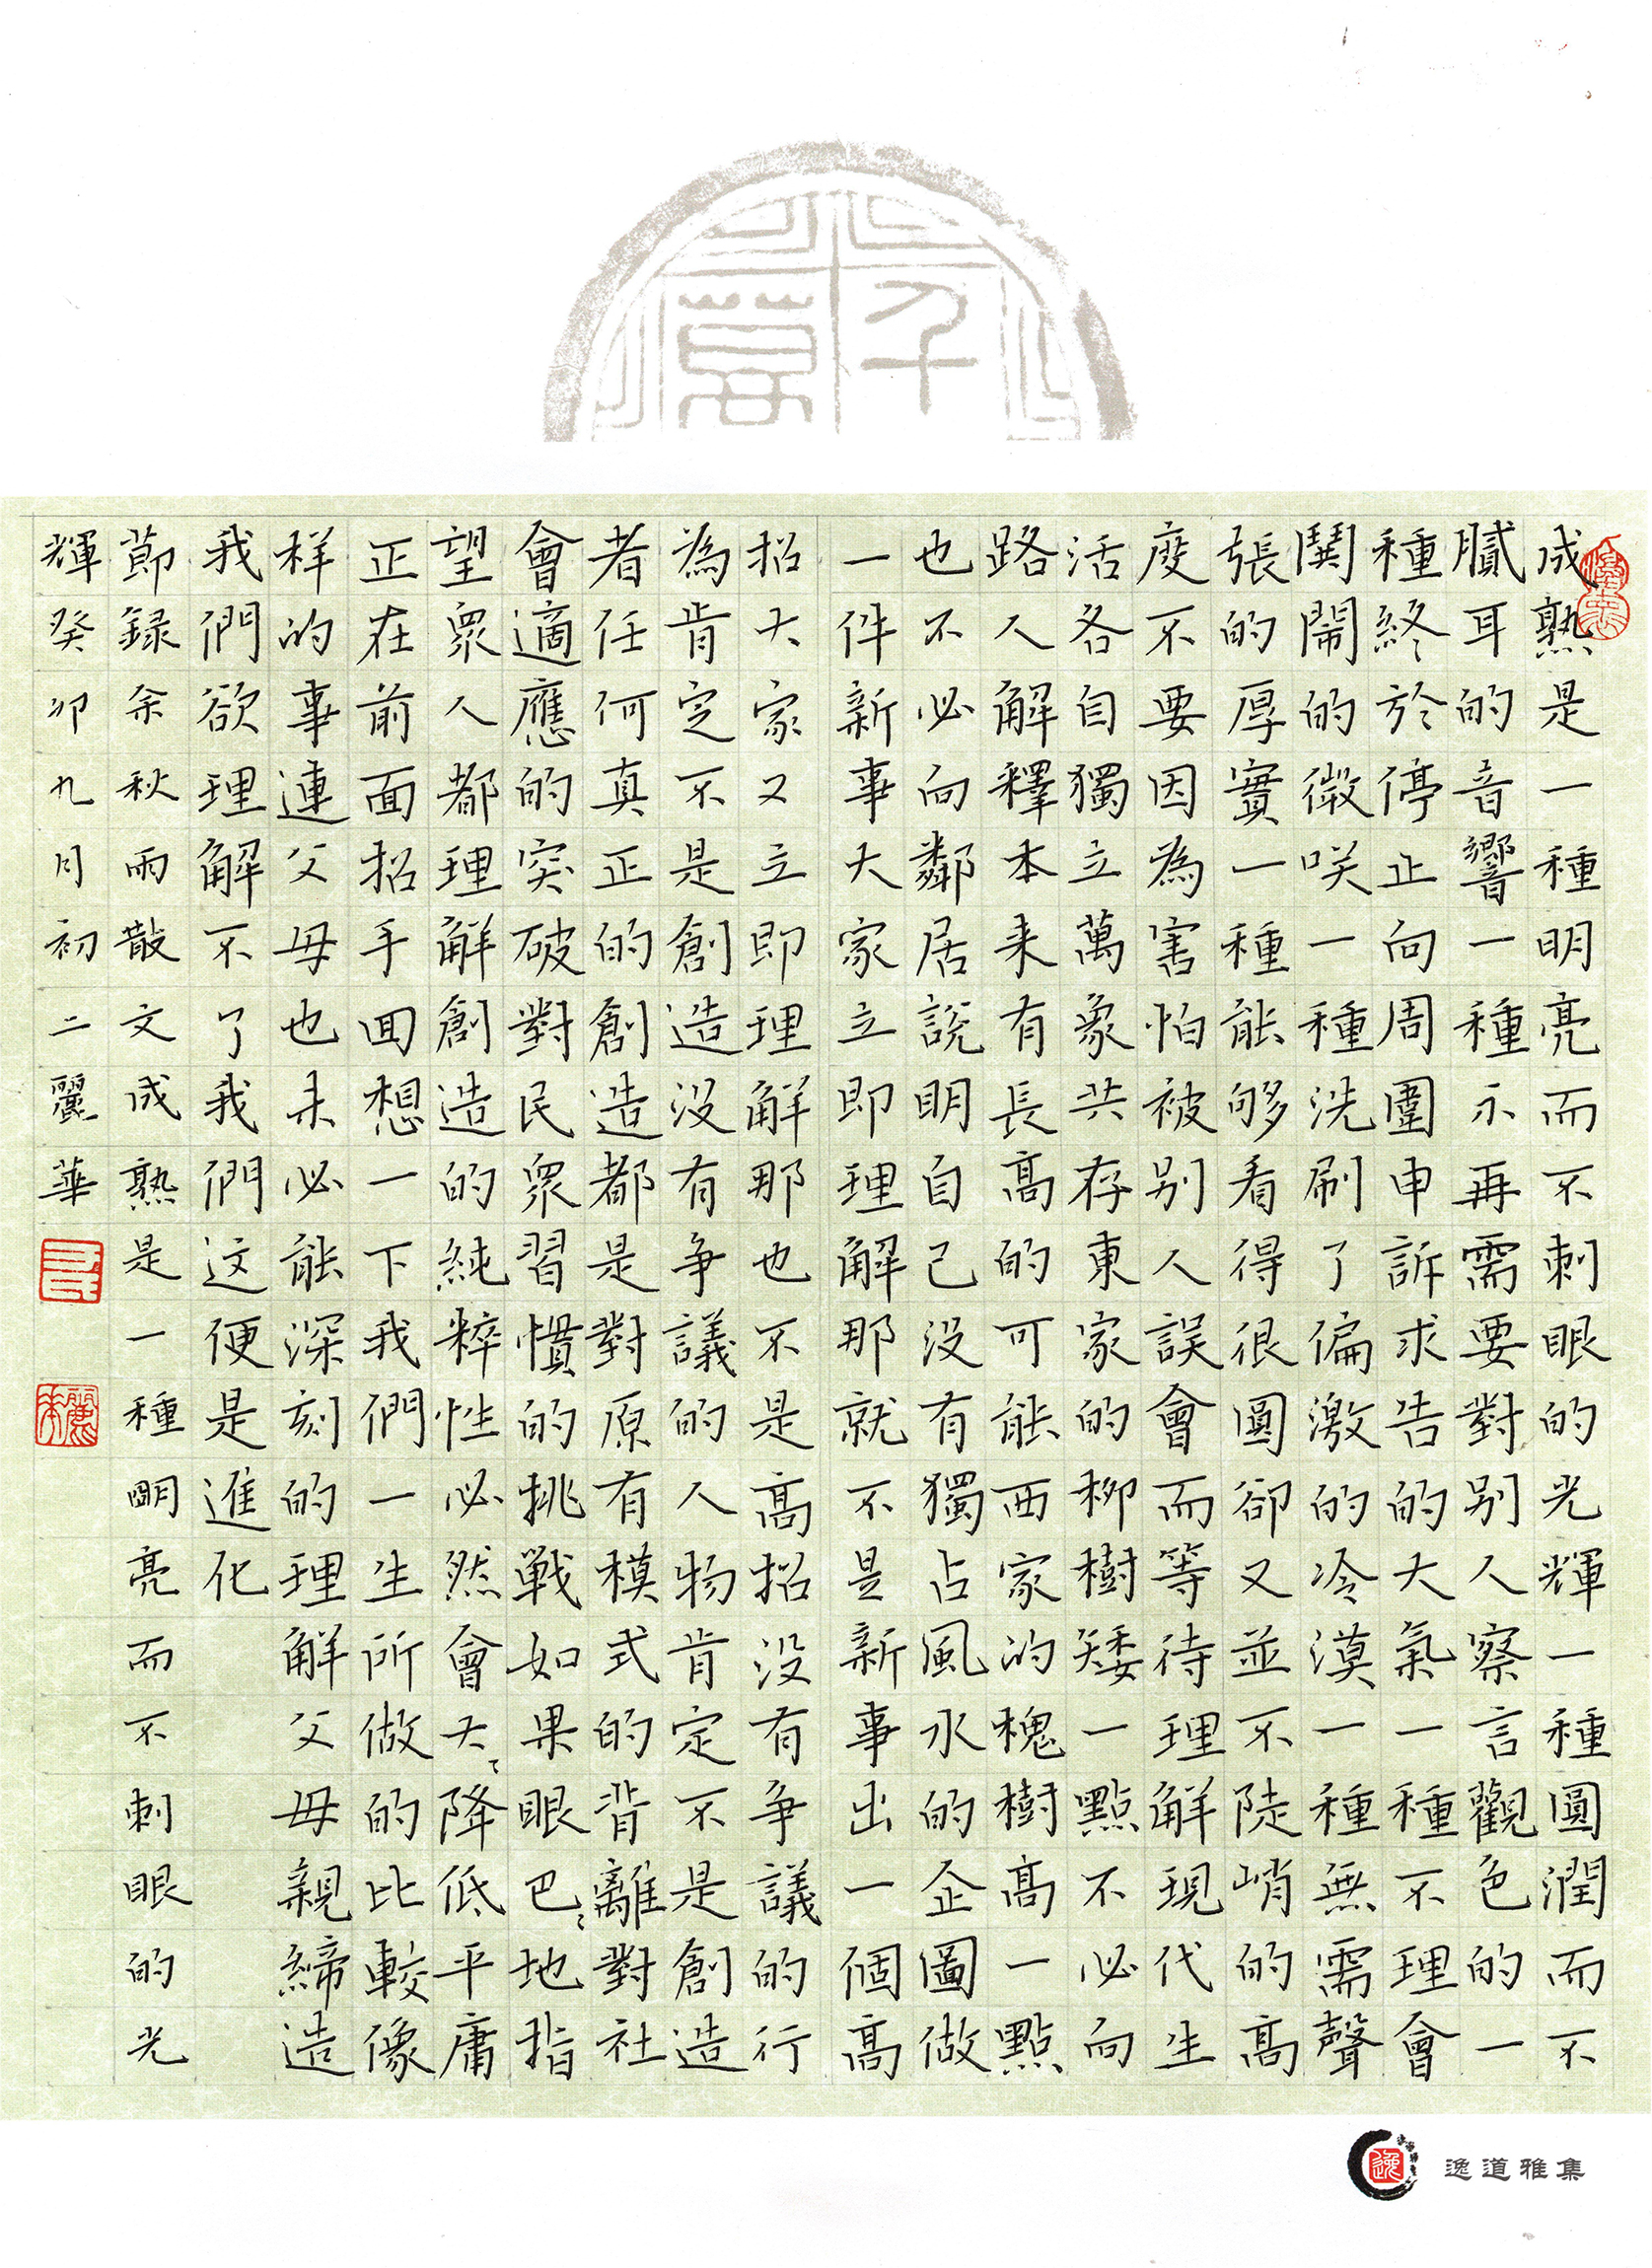 成熟是一種明亮而不刺眼的光輝一種圓潤而不
膩耳的音響一種不再需要對别人察言觀色的一
種終於停止向周圍申訴求告的大氣一種不理會
鬨鬧的微咲一種洗刷了偏激的冷漠一種無需聲
張的厚實一種能够看得很圓卻又並不陡峭的高
度不要因為害怕被别人誤會而等待理解現代生
活各自獨立萬象共存東家的柳樹矮一點不必向
路人解釋本来有長高的可能西家的槐樹高一點
也不必向鄰居説明自己没有獨占風水的企圖做
一件新事大家立即理解那就不是新事出一個高
招大家又立即理解那也不是高招没有争議的行
為肯定不是創造没有争議的人物肯定不是創造
者任何真正的創造都是對原有模式的背離對社
會適應的突破對民衆習慣的挑戰如果眼巴〻地指
望衆人都理解創造的純粹性必然會大〻降低平庸
正在前面招手回想一下我們一生所做的比較像
样的事連父母也未必能深刻的理解父母親締造
我們欲理解不了我們这便是進化
節録余秋雨散文成熟是一種明亮而不刺眼的光
輝癸卯九月初二麗華
逸
逸道雅集